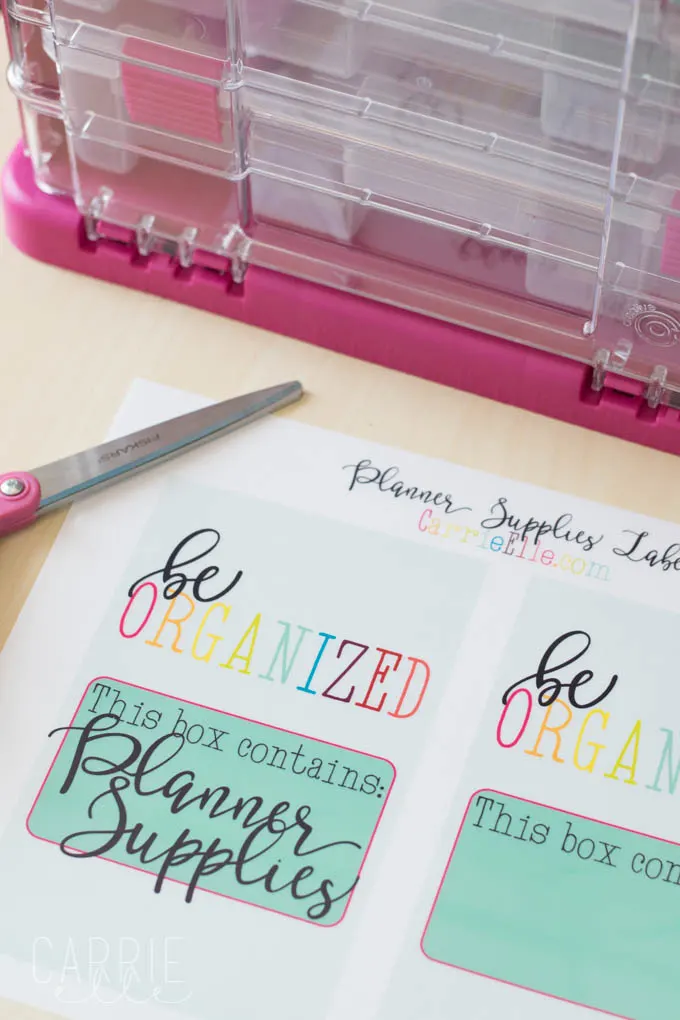 FISKARS
Planner Supplies Labe
CarrieElle.com
be
ORGANIZED
This box contains:
Planner
Supplies
be
ORGAN
This box con
CARRIE
elle